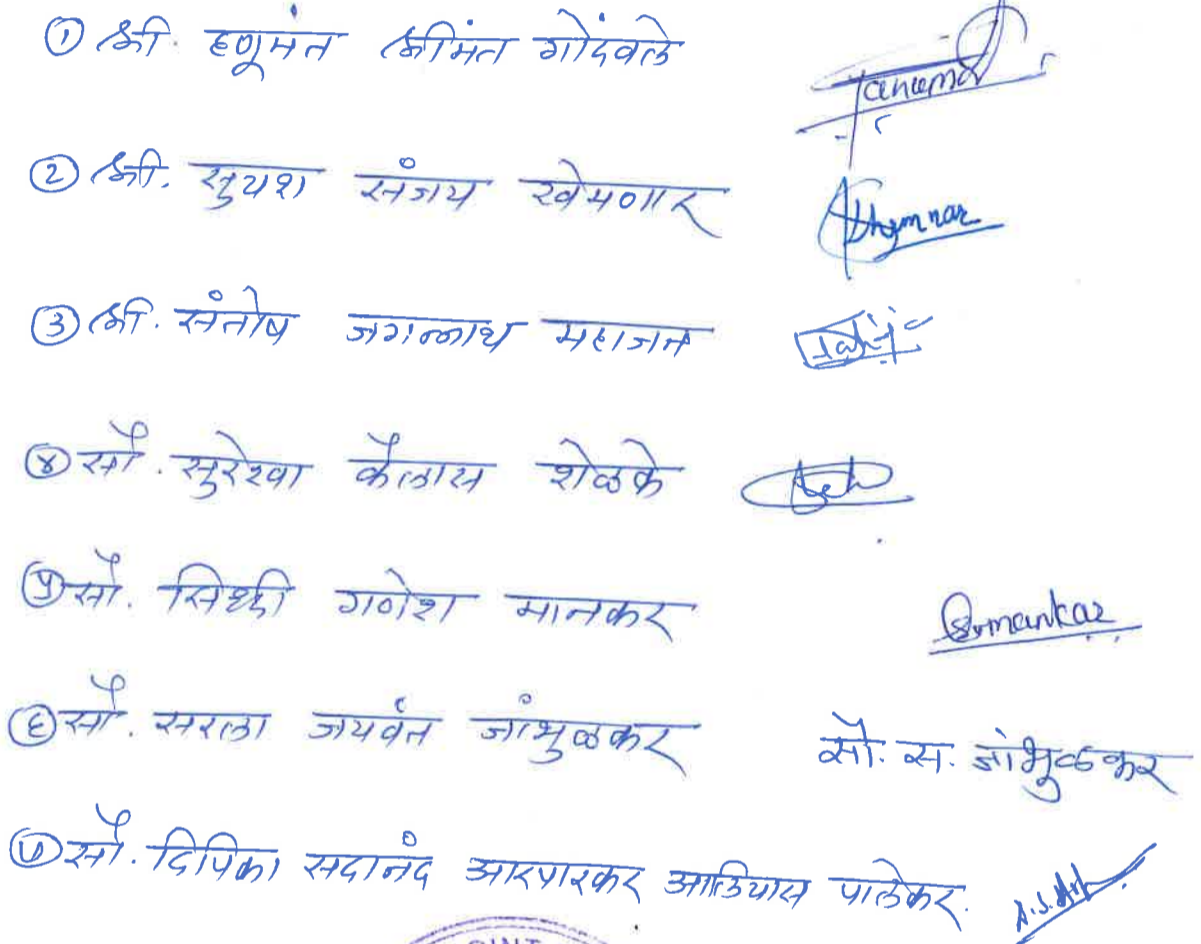 ① श्री. हणूमंत श्रीमंत गोंदवले
② श्री. सुयश संजय खेमणार Khemnar
③ श्री. संतोष जगन्नाथ महाजन
④ सौ. सुरेखा कैलास शेळके
⑤ सौ. सिध्दी गणेश मानकर Smankar
⑥ सौ. सरला जयवंत जांभुळकर सौ. स. जांभुळकर
⑦ सौ. दिपिका सदानंद आरपारकर आलियास पालेकर.